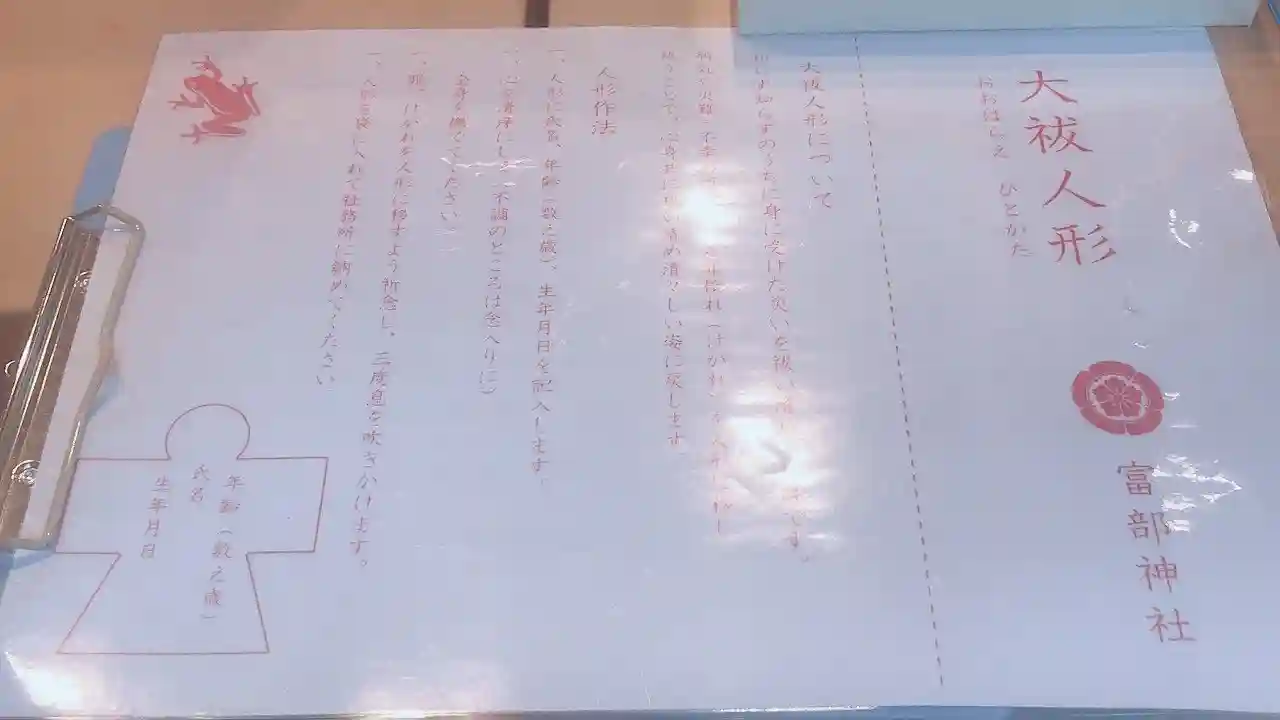 大祓人形
おおはらえ ひとかた
富部神社
大祓人形について
知らずのうちに身に受けた災いを祓い
です。
病気や災難、不幸
穢れ(けがれ)を人形に移し
祓うことで、心身共に祓い清め清々しい姿に戻します
人形作法
一、人形に氏名、年齢(数え歳)、生年月日を記入します。
一、心を清浄にし、(不調のところは念入りに)
全身を撫でてください
一、罪、けがれを人形に移すよう祈念し、三度息を吹きかけます。
一、人形を袋に入れて社務所に納めてください
年齢(数え歳)
氏名
生年月日